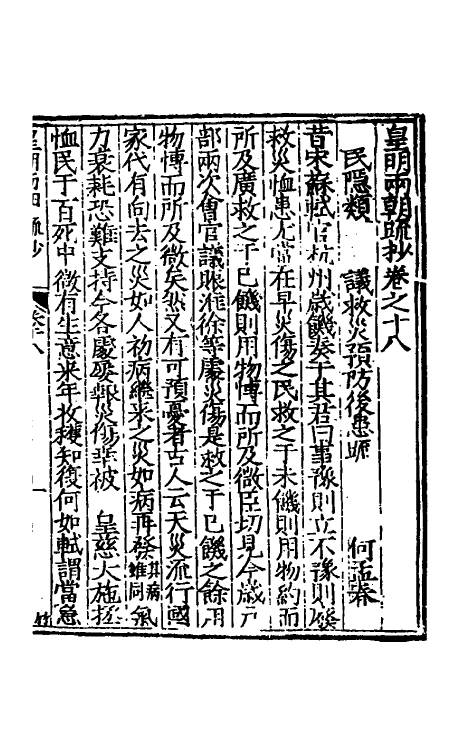 皇明兩朝疏抄卷之十八
民隱類
議救災預防後患疏 何孟春
昔宋蘇軾官杭州歲饑奏于其君曰事豫則立不豫則廢
救災恤患尤當在早災傷之民救之于未饑則用物約而
所及廣救之于已饑則用物博而所及微臣切見今歲戶
部兩次會官議賑淮徐等處災傷是救之于已饑之餘用
物博而所及微矣然又有可預憂者古人云天災流行國
家代有向去之災如人初病繼來之災如病再發其病雖同氣
力衰耗恐難支持今各處奏報災傷幸被 皇慈大施拯
恤民于百死中微有生意來年收穫知復何如軾謂當急